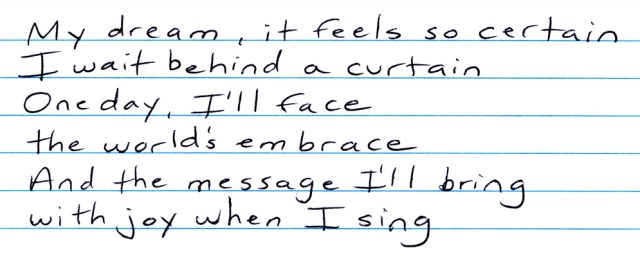 My dream, it feels so certain
I wait behind a curtain
One day, I'll face
the world's embrace
And the message I'll bring
with joy when I sing